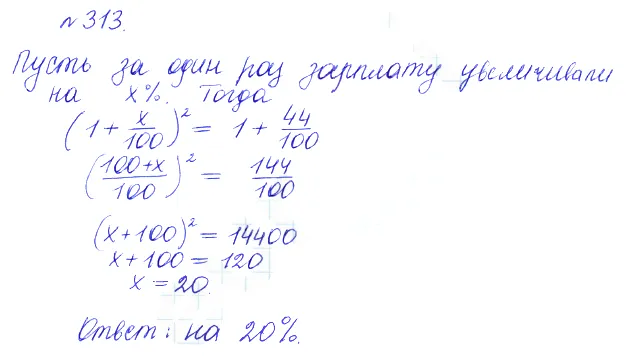 №313.
Пусть за один раз зарплату увеличивали
на x%. Тогда
(1 + x/100)² = 1 + 44/100
((100+x)/100)² = 144/100
(x+100)² = 14400
x + 100 = 120
x = 20.
Ответ: на 20%.